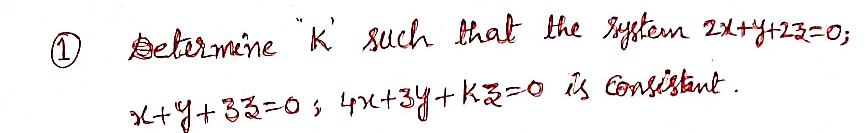 ① Determine "K' such that the system 2x+y+2z=0;
x+y+3z=0; 4x+3y+Kz=0 is consistent.